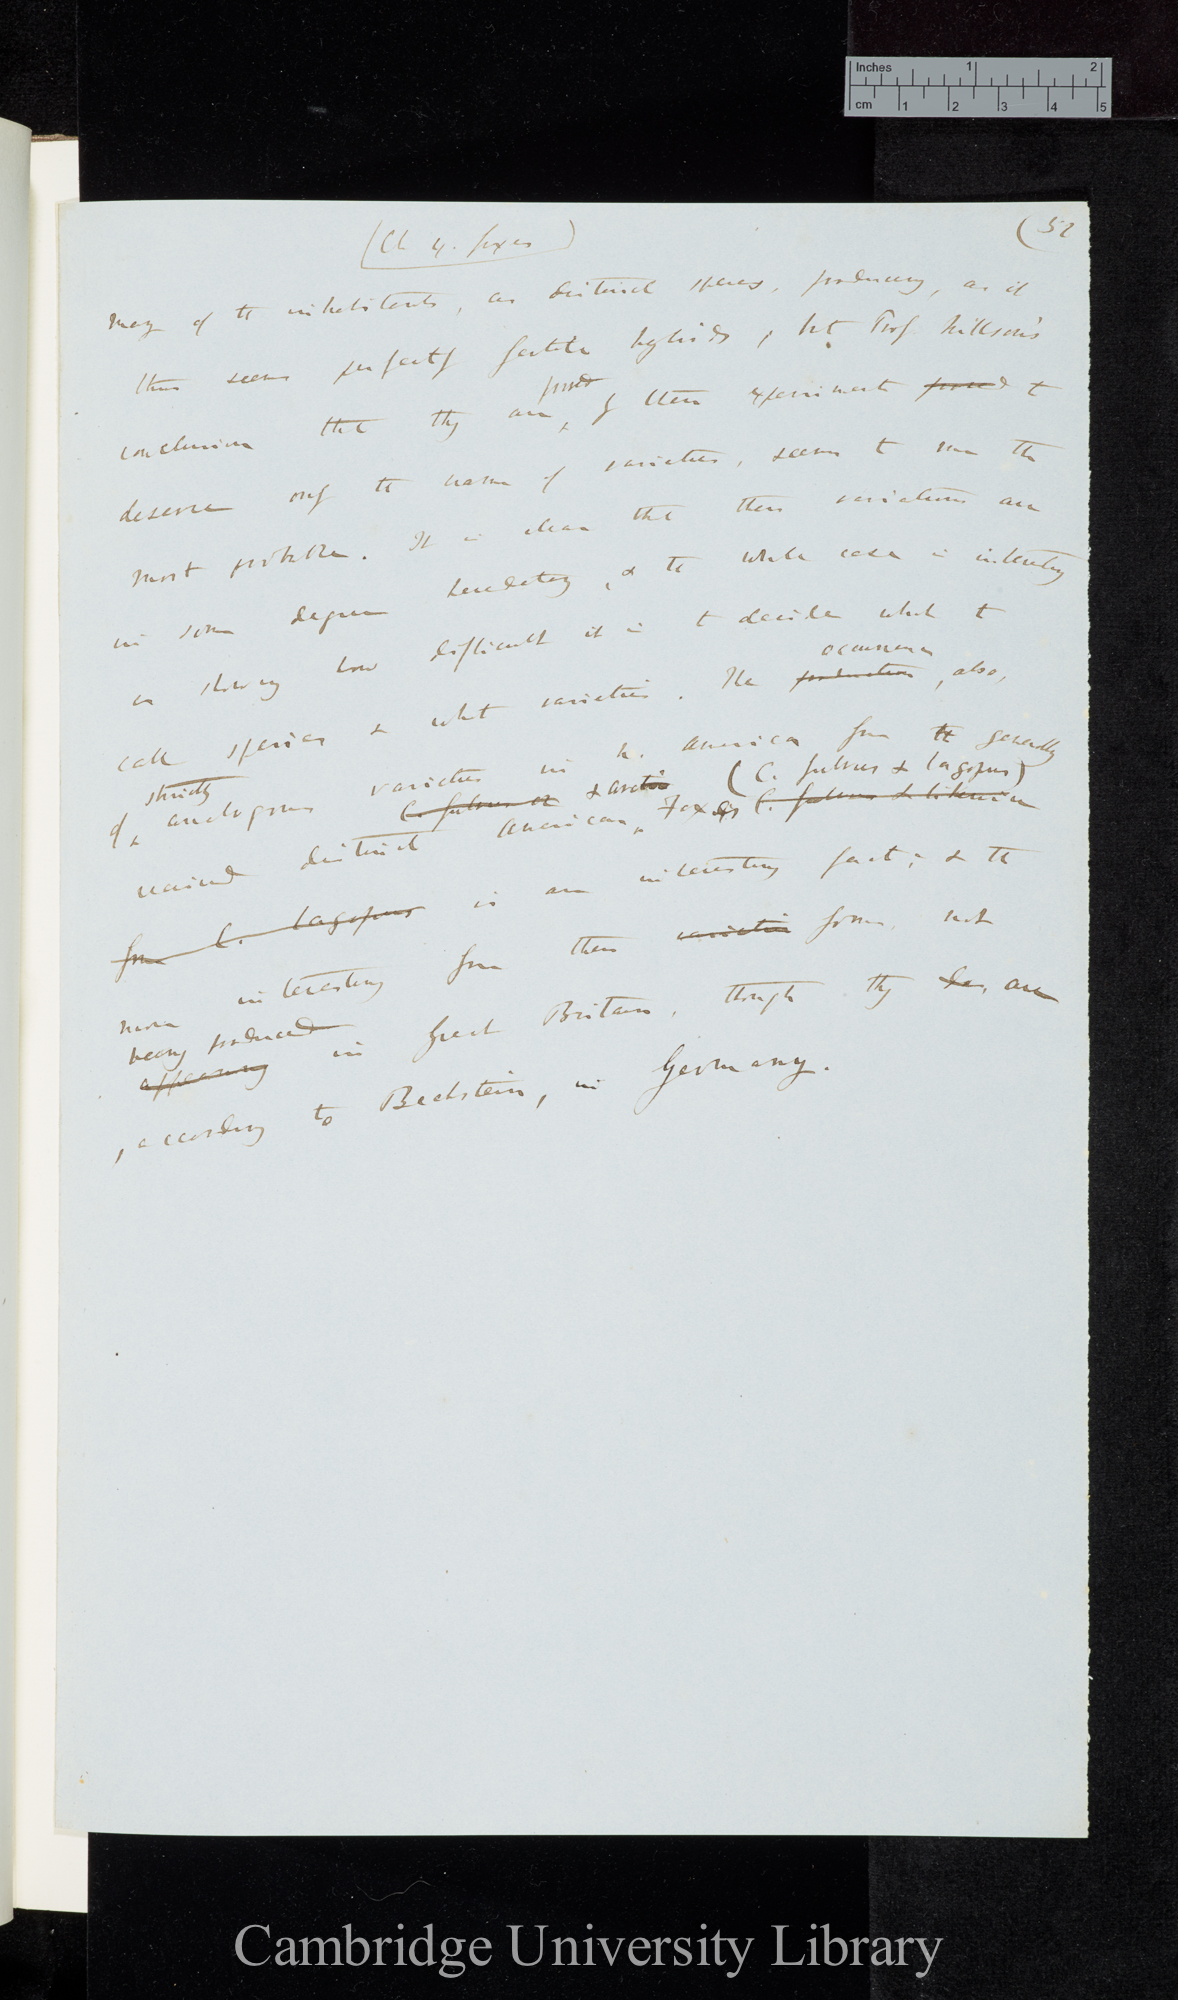 Inches 1 2
cm 1 2 3 4 5
(Ch 4. foxes)
(52
many of the inhabitants, as distinct species, producing, as it
thus seems perfectly fertile hybrids; but Prof Nillson's
proved
conclusion that they are, by these experiments proved to
deserve only the name of varieties, seems to me the
most probable. It is clear that these variations are
in some degree hereditary, & the whole case is interesting
as showing how difficult it is to decide what to
occurrence
call species & what varieties. The production, also,
strictly
of analogous varieties in N. America from the generally
C. fulvus & arctic (C. fulvus & lagopus)
received distinct American Foxes C. fulvus &
from C. lagopus is an interesting fact; & the
more interesting from these varieties forms, not
being produced
appearing in Great Britain, though they are
, according to Bechstein, in Germany.
Cambridge University Library